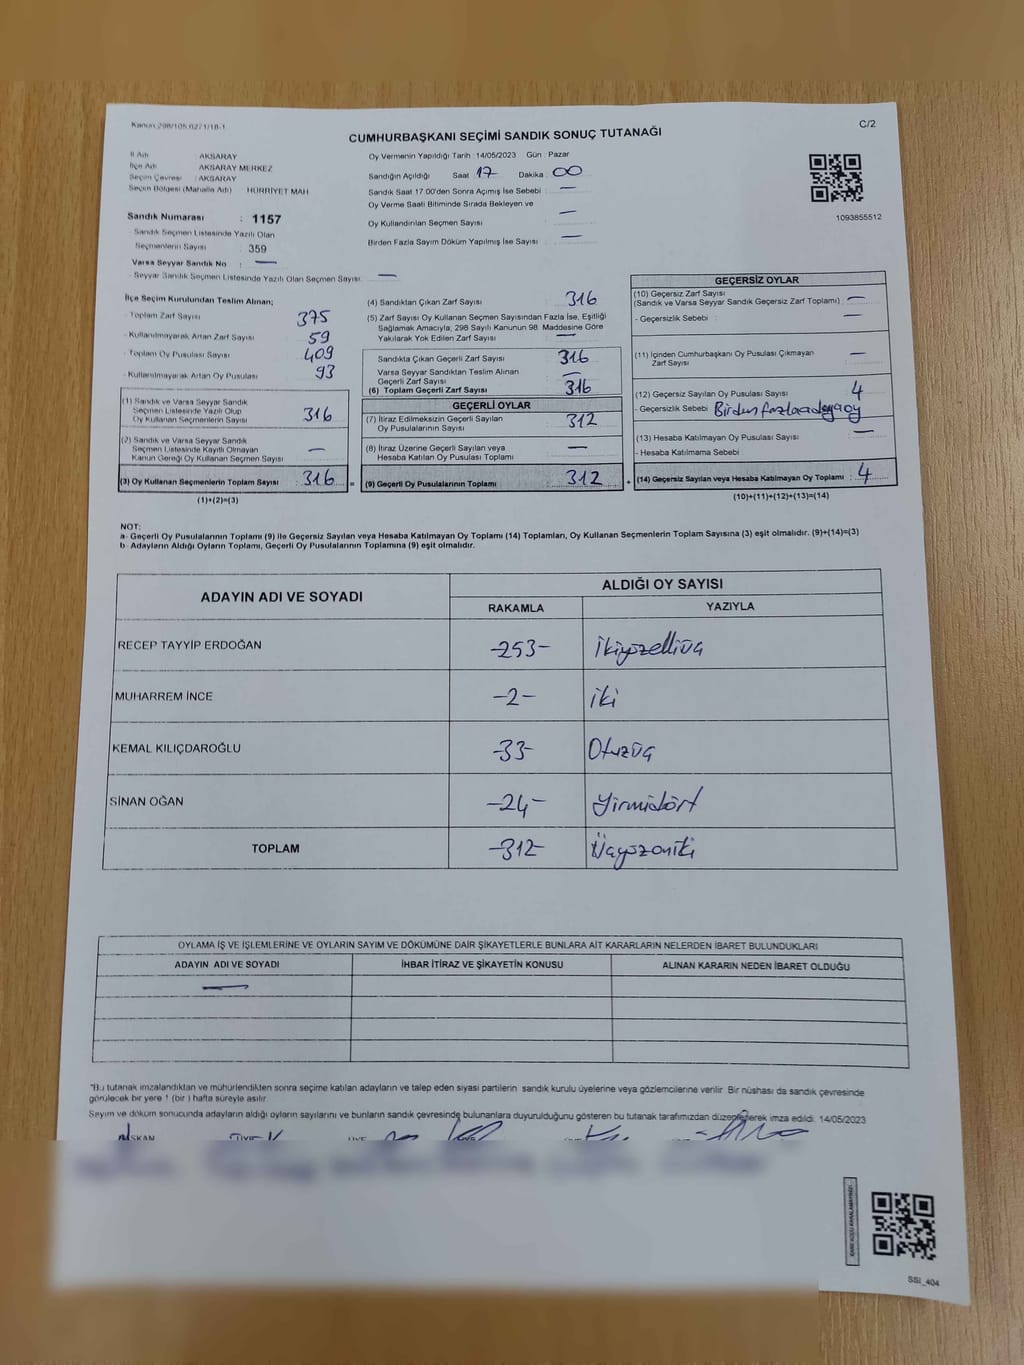 Kanun 298/105 627 1/18-1
C/2
CUMHURBAŞKANI SEÇİMİ SANDIK SONUÇ TUTANAĞI
İl Adı : AKSARAY
İlçe Adı : AKSARAY MERKEZ
Seçim Çevresi : AKSARAY
Seçim Bölgesi (Mahalle Adı) : HÜRRİYET MAH
Sandık Numarası : 1157
- Sandık Seçmen Listesinde Yazılı Olan
Seçmenlerin Sayısı : 359
Varsa Seyyar Sandık No : —
- Seyyar Sandık Seçmen Listesinde Yazılı Olan Seçmen Sayısı : —
Oy Vermenin Yapıldığı Tarih : 14/05/2023 Gün : Pazar
Sandığın Açıldığı Saat : 17 Dakika : 00
Sandık Saat 17.00'den Sonra Açımış İse Sebebi : —
Oy Verme Saati Bitiminde Sırada Bekleyen ve
Oy Kullandırılan Seçmen Sayısı : —
Birden Fazla Sayım Döküm Yapılmış İse Sayısı : —
1093855512
İlçe Seçim Kurulundan Teslim Alınan;
- Toplam Zarf Sayısı : 375
- Kullanılmayarak Artan Zarf Sayısı : 59
- Toplam Oy Pusulası Sayısı : 409
- Kullanılmayarak Artan Oy Pusulası : 93
(1) Sandık ve Varsa Seyyar Sandık
Seçmen Listesinde Yazılı Olup
Oy Kullanan Seçmenlerin Sayısı : 316
(2) Sandık ve Varsa Seyyar Sandık
Seçmen Listesinde Kayıtlı Olmayan
Kanun Gereği Oy Kullanan Seçmen Sayısı : —
(3) Oy Kullanan Seçmenlerin Toplam Sayısı : 316
(1)+(2)=(3)
=
(4) Sandıktan Çıkan Zarf Sayısı : 316
(5) Zarf Sayısı Oy Kullanan Seçmen Sayısından Fazla İse, Eşitliği
Sağlamak Amacıyla, 298 Sayılı Kanunun 98. Maddesine Göre
Yakılarak Yok Edilen Zarf Sayısı : —
Sandıkta Çıkan Geçerli Zarf Sayısı : 316
Varsa Seyyar Sandıktan Teslim Alınan
Geçerli Zarf Sayısı : —
(6) Toplam Geçerli Zarf Sayısı : 316
GEÇERLİ OYLAR
(7) İtiraz Edilmeksizin Geçerli Sayılan
Oy Pusulalarının Sayısı : 312
(8) İtiraz Üzerine Geçerli Sayılan veya
Hesaba Katılan Oy Pusulası Toplamı : —
(9) Geçerli Oy Pusulalarının Toplamı : 312
+
GEÇERSİZ OYLAR
(10) Geçersiz Zarf Sayısı
(Sandık ve Varsa Seyyar Sandık Geçersiz Zarf Toplamı) : —
- Geçersizlik Sebebi : —
(11) İçinden Cumhurbaşkanı Oy Pusulası Çıkmayan
Zarf Sayısı : —
(12) Geçersiz Sayılan Oy Pusulası Sayısı : 4
- Geçersizlik Sebebi : Birden fazla adaya oy
(13) Hesaba Katılmayan Oy Pusulası Sayısı : —
- Hesaba Katılmama Sebebi :
(14) Geçersiz Sayılan veya Hesaba Katılmayan Oy Toplamı : 4
(10)+(11)+(12)+(13)=(14)
NOT:
a- Geçerli Oy Pusulalarının Toplamı (9) ile Geçersiz Sayılan veya Hesaba Katılmayan Oy Toplamı (14) Toplamları, Oy Kullanan Seçmenlerin Toplam Sayısına (3) eşit olmalıdır. (9)+(14)=(3)
b- Adayların Aldığı Oyların Toplamı, Geçerli Oy Pusulalarının Toplamına (9) eşit olmalıdır.
ADAYIN ADI VE SOYADI
ALDIĞI OY SAYISI
RAKAMLA YAZIYLA
RECEP TAYYİP ERDOĞAN -253- İkiyüzelliüç
MUHARREM İNCE -2- iki
KEMAL KILIÇDAROĞLU -33- Otuzüç
SİNAN OĞAN -24- yirmidört
TOPLAM -312- Üçyüzoniki
OYLAMA İŞ VE İŞLEMLERİNE VE OYLARIN SAYIM VE DÖKÜMÜNE DAİR ŞİKAYETLERLE BUNLARA AİT KARARLARIN NELERDEN İBARET BULUNDUKLARI
ADAYIN ADI VE SOYADI İHBAR İTİRAZ VE ŞİKAYETİN KONUSU ALINAN KARARIN NEDEN İBARET OLDUĞU
—
"Bu tutanak imzalandıktan ve mühürlendikten sonra seçime katılan adayların ve talep eden siyasi partilerin sandık kurulu üyelerine veya gözlemcilerine verilir. Bir nüshası da sandık çevresinde
görülecek bir yere 1 (bir ) hafta süreyle asılır.
Sayım ve döküm sonucunda adayların aldığı oyların sayılarını ve bunların sandık çevresinde bulunanlara duyurulduğunu gösteren bu tutanak tarafımızdan düzenlenerek imza edildi. 14/05/2023
KARE KODU KARALAMAYINIZ!
SSI_404